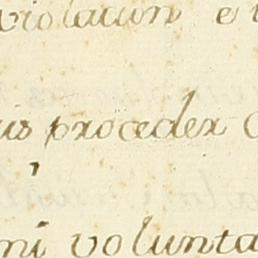 violacion e
us proceder
mi volunta